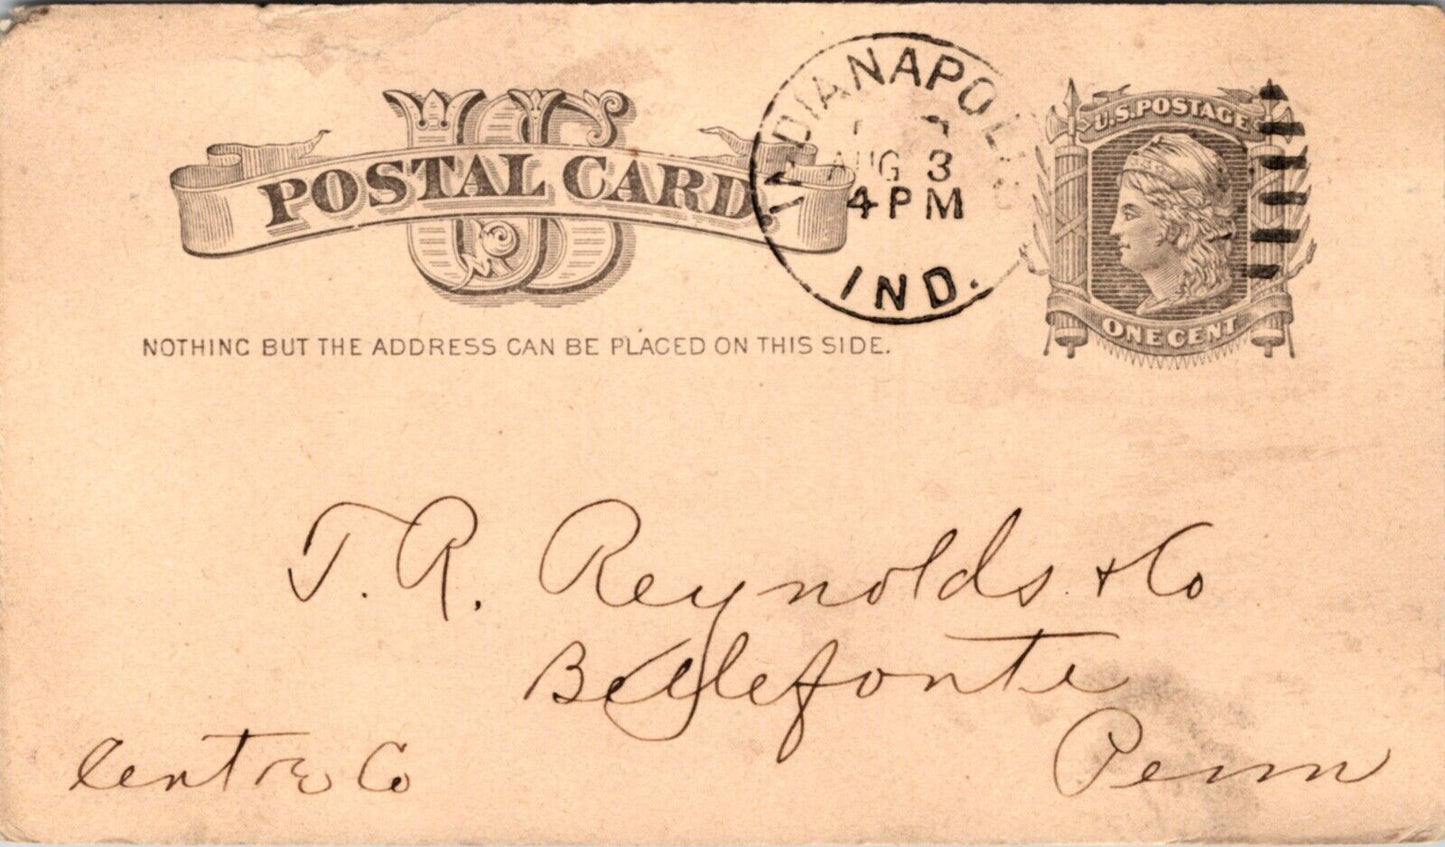 US
POSTAL CARD.
INDIANAPOLIS
AUG 3
4 PM
IND.
U.S. POSTAGE
ONE CENT
NOTHING BUT THE ADDRESS CAN BE PLACED ON THIS SIDE.
T. R. Reynolds & Co
Bellefonte
Centre Co
Penn